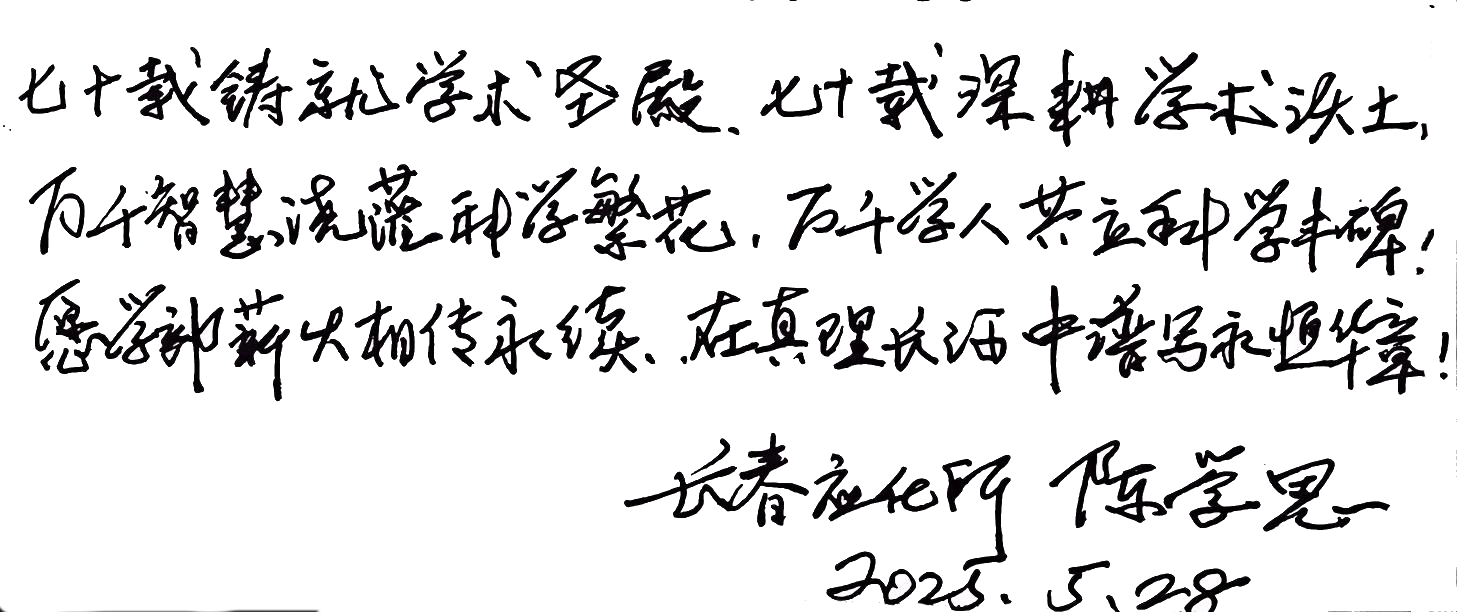 七十载铸就学术圣殿、七十载深耕学术沃土,
万千智慧浇灌科学繁花,万千学人共立科学丰碑!
愿学部薪火相传永续、在真理长河中谱写永恒华章!
长春应化所 陈学思
2025.5.28